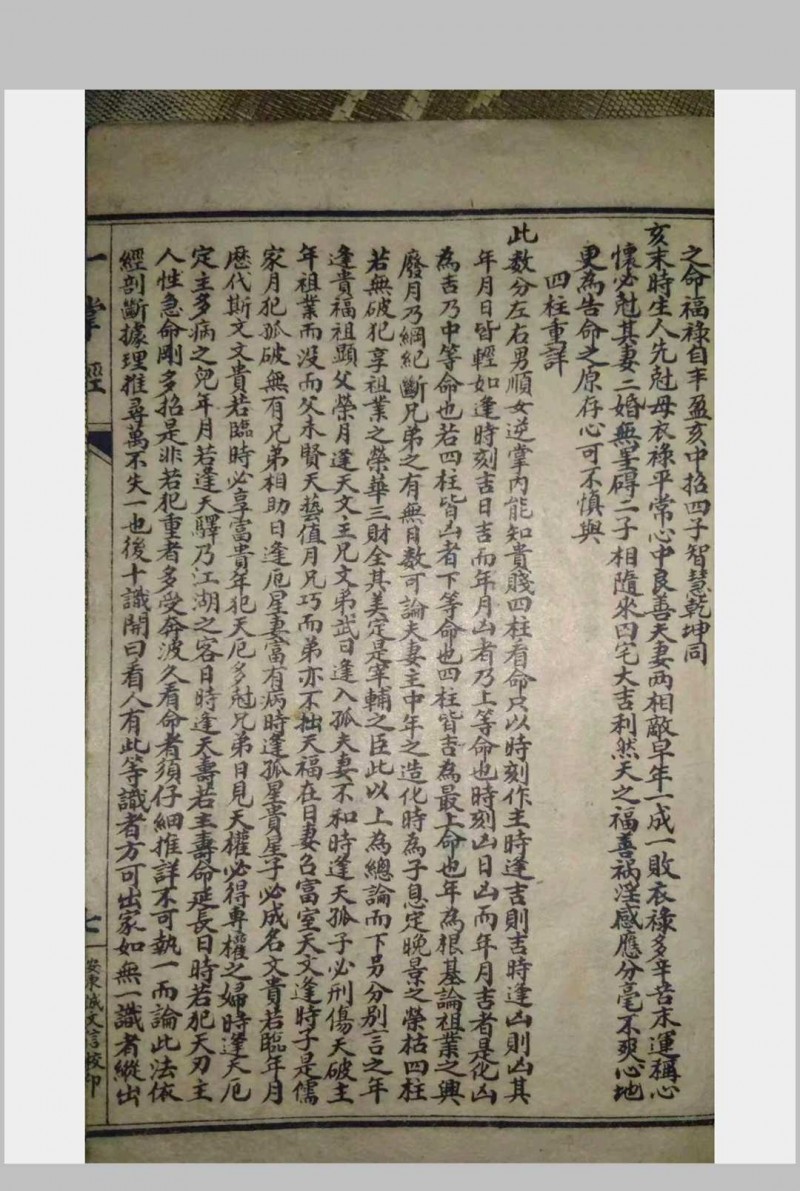 之命福祿自丰盈亥中招四子智慧乾坤同
亥末時生人先尅母衣祿平常心中良善夫妻兩相敵早年一成一敗衣祿多辛苦末運稱心
懷必尅其妻二婚無罣碍二子相隨來四宅大吉利然天之福善祸淫感應分毫不爽心地
更為告命之原存心可不慎與
四柱重詳
此数分左右男順女逆掌内能知貴賤四柱看命只以時刻作主時逢吉則吉時逢凶則凶其
年月日皆輕如逢時刻吉日吉而年月凶者乃上等命也時刻凶日凶而年月吉者是化凶
為吉乃中等命也若四柱皆凶者下等命也四柱皆吉為最上命也年為根基論祖業之興
廢月乃綱紀斷兄弟之有無日数可論夫妻主中年之造化時為子息定晚景之榮枯四柱
若無破犯享祖業之榮華三財全其美定是宰輔之臣此以上為總論而下另分别言之年
逢貴福祖顯父榮月逢天文主兄文弟武日逢入孤夫妻不和時逢天孤子必刑傷天破主
年祖業而没而父未賢天藝值月兄巧而弟亦不拙天福在日妻名富室天文逢時子是儒
家月犯孤破無有兄弟相助日逢厄星妻富有病時逢孤星貴星子必成名文貴若臨年月
歴代斯文文貴若臨時必享富貴年犯天厄多尅兄弟日見天權必得專權之婦時逢天厄
定主多病之兒年月若逢天驛乃江湖之客日時逢天壽若主壽命延長日時若犯天刃主
人性急命剛多招是非若犯重者多受奔波久看命者須仔細推詳不可執一而論此法依
經剖斷據理推尋萬不失一也後十識開曰看人有此等識者方可出家如無一識者縱出
一掌經
七
安東誠文信校印